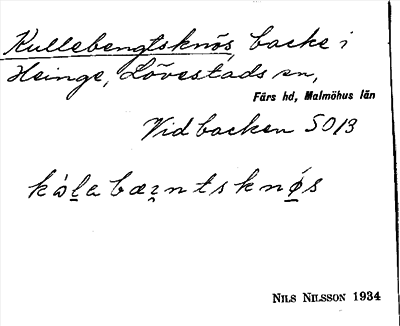 Kullebengtsknös, backe i
Heinge, Lövestads sn,
Färs hd, Malmöhus län
Vid backen 5013
kòl̲abæn̬tsknǿ̲s
NILS NILSSON 1934